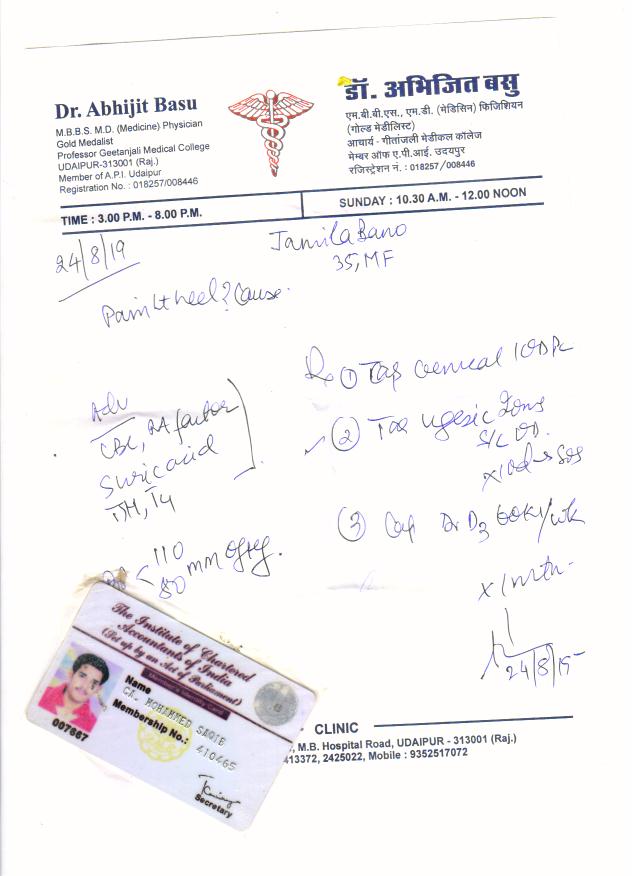 Dr. Abhijit Basu
M.B.B.S. M.D. (Medicine) Physician
Gold Medalist
Professor Geetanjali Medical College
UDAIPUR-313001 (Raj.)
Member of A.P.I. Udaipur
Registration No. : 018257/008446
डॉ. अभिजित बसु
एम.बी.बी.एस., एम.डी. (मेडिसिन) फिजिशियन
(गोल्ड मेडीलिस्ट)
आचार्य - गीतांजली मेडीकल कॉलेज
मेम्बर ऑफ ए.पी.आई. उदयपुर
रजिस्ट्रेशन नं. : 018257/008446
TIME : 3.00 P.M. - 8.00 P.M.
SUNDAY : 10.30 A.M. - 12.00 NOON
24/8/19
Jamila Bano
35, MF
Pain Lt heel ? Cause.
Adv
CBC, RA factor
S uric acid
TSH, T4
110
80 mm of Hg.
Rx ① 1 OD PC
② Tab Ugesic 20mg
S/L OD
x 10d → SOS
③ Cap D3 60K1/wk
x 1 mth
24/8/19
The Institute of Chartered
Accountants of India
(Set up by an Act of Parliament)
Name
CA. MOHAMMED SAQIB
Membership No.: 410465
007667
Secretary
CLINIC
, M.B. Hospital Road, UDAIPUR - 313001 (Raj.)
413372, 2425022, Mobile : 9352517072